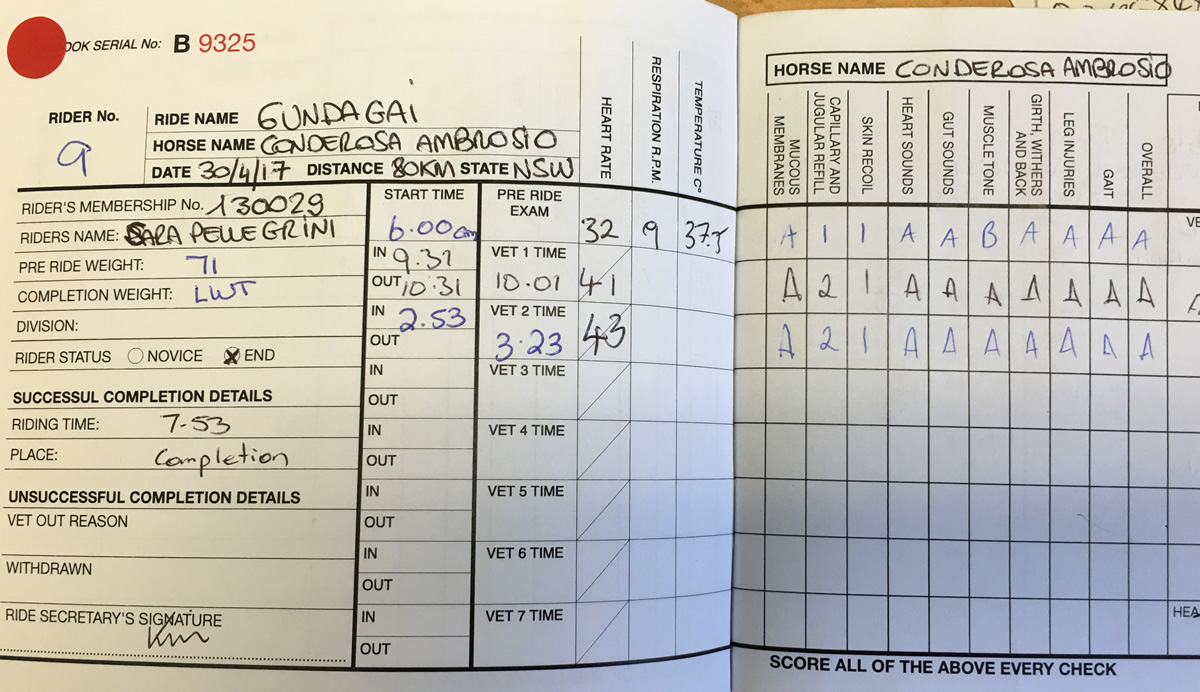 OOK SERIAL No: B 9325
RIDER No.
9
RIDE NAME GUNDAGAI
HORSE NAME CONDEROSA AMBROSIO
DATE 30/4/17 DISTANCE 80KM STATE NSW
HEART RATE
RESPIRATION R.P.M.
TEMPERATURE C°
RIDER'S MEMBERSHIP No. 130029
RIDERS NAME: SARA PELLEGRINI
PRE RIDE WEIGHT: 71
COMPLETION WEIGHT: LWT
DIVISION:
RIDER STATUS NOVICE X END
SUCCESSUL COMPLETION DETAILS
RIDING TIME: 7-53
PLACE: Completion
UNSUCCESSFUL COMPLETION DETAILS
VET OUT REASON
WITHDRAWN
RIDE SECRETARY'S SIGNATURE
START TIME PRE RIDE EXAM
6.00am 32 9 37.5
IN 9.31 VET 1 TIME
OUT 10.31 10.01 41
IN 2.53 VET 2 TIME
OUT 3.23 43
IN VET 3 TIME
OUT
IN VET 4 TIME
OUT
IN VET 5 TIME
OUT
IN VET 6 TIME
OUT
IN VET 7 TIME
OUT
HORSE NAME CONDEROSA AMBROSIO
MUCOUS MEMBRANES
CAPILLARY AND JUGULAR REFILL
SKIN RECOIL
HEART SOUNDS
GUT SOUNDS
MUSCLE TONE
GIRTH, WITHERS AND BACK
LEG INJURIES
GAIT
OVERALL
A 1 1 A A B A A A A
A 2 1 A A A A A A A
A 2 1 A A A A A A A
VE
HEA
SCORE ALL OF THE ABOVE EVERY CHECK